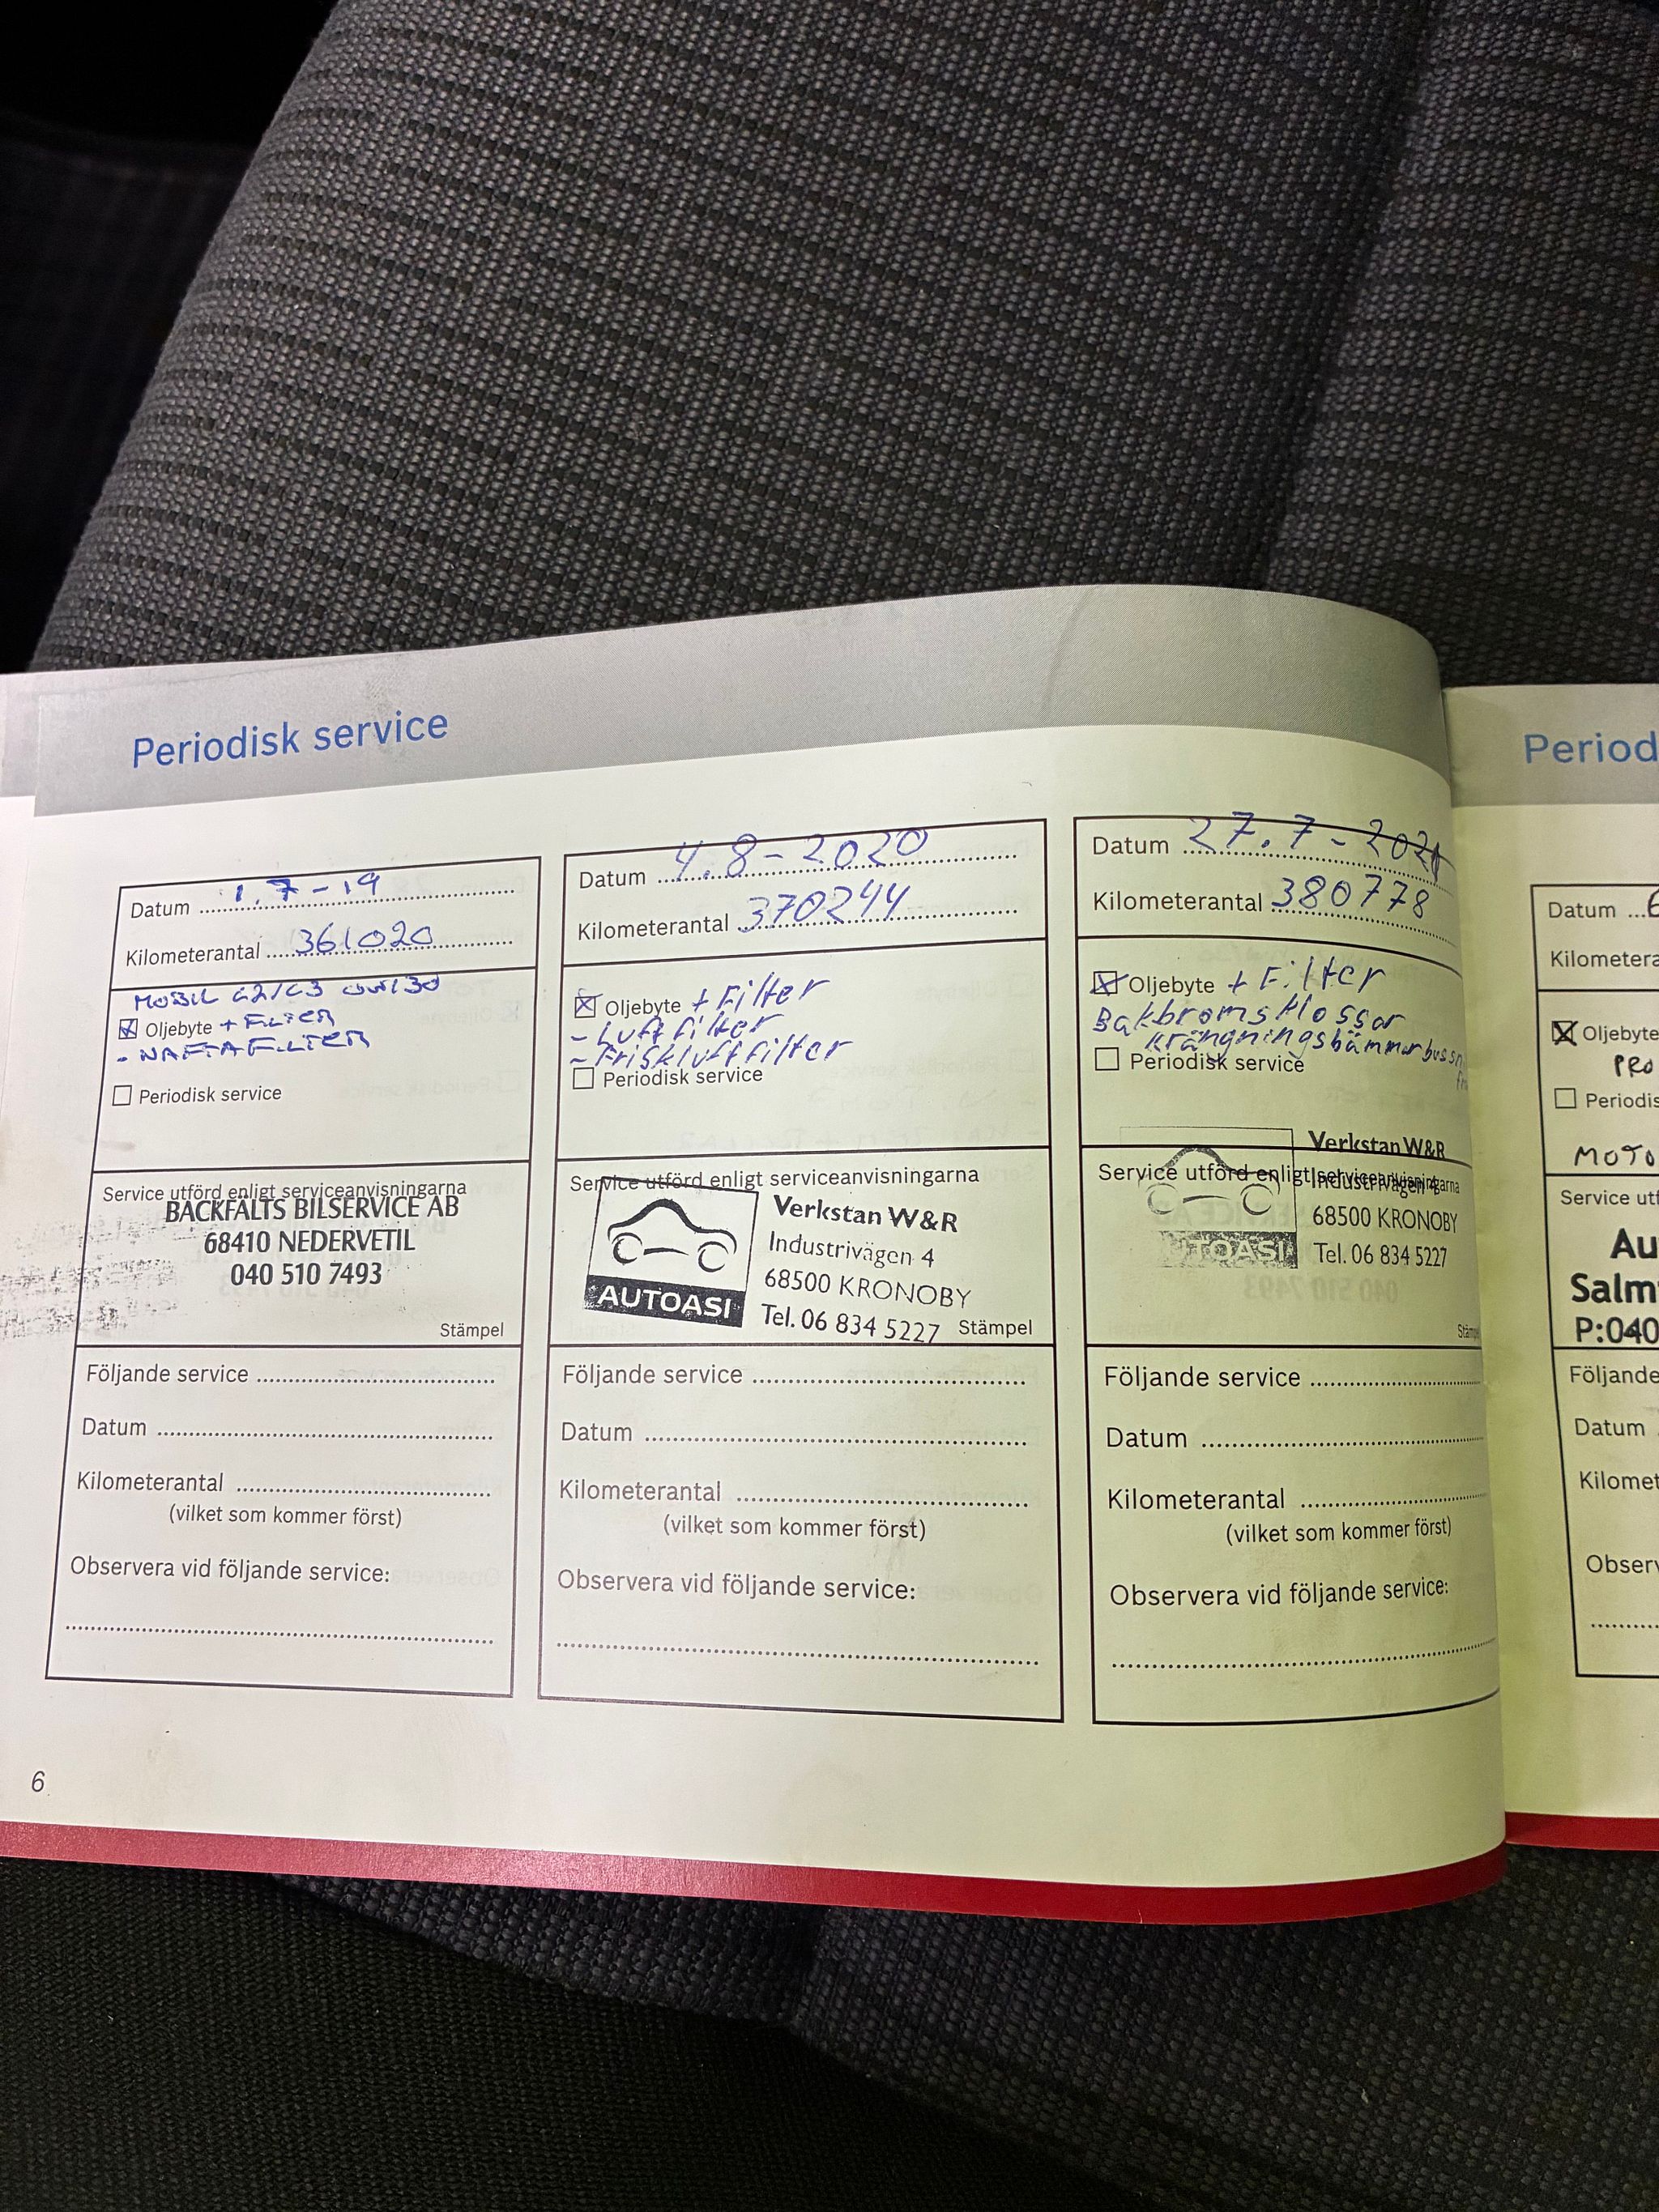 Periodisk service
Datum 1.7-19
Kilometerantal 361020
MOBIL C2/C3 0W/30
Oljebyte + FILTER
- NAFTAFILTER
Periodisk service
Service utförd enligt serviceanvisningarna
BACKFÄLTS BILSERVICE AB
68410 NEDERVETIL
040 510 7493
Stämpel
Följande service
Datum
Kilometerantal
(vilket som kommer först)
Observera vid följande service:
Datum 4.8-2020
Kilometerantal 370244
Oljebyte + Filter
- Luftfilter
- Friskluftfilter
Periodisk service
Service utförd enligt serviceanvisningarna
Verkstan W&R
Industrivägen 4
68500 KRONOBY
Tel. 06 834 5227
AUTOASI
Stämpel
Följande service
Datum
Kilometerantal
(vilket som kommer först)
Observera vid följande service:
Datum 27.7-2021
Kilometerantal 380778
Oljebyte + Filter
Bakbromsklossar
Krängningshämmar
Periodisk service
Service utförd enligt serviceanvisningarna
Verkstan W&R
Industrivägen 4
68500 KRONOBY
Tel. 06 834 5227
AUTOASI
Stämpel
Följande service
Datum
Kilometerantal
(vilket som kommer först)
Observera vid följande service:
6
Period
Datum
Kilometera
Oljebyte
PRO
Periodis
MOTO
Service utf
Au
Salm
P:040
Följande
Datum
Kilomet
Observ